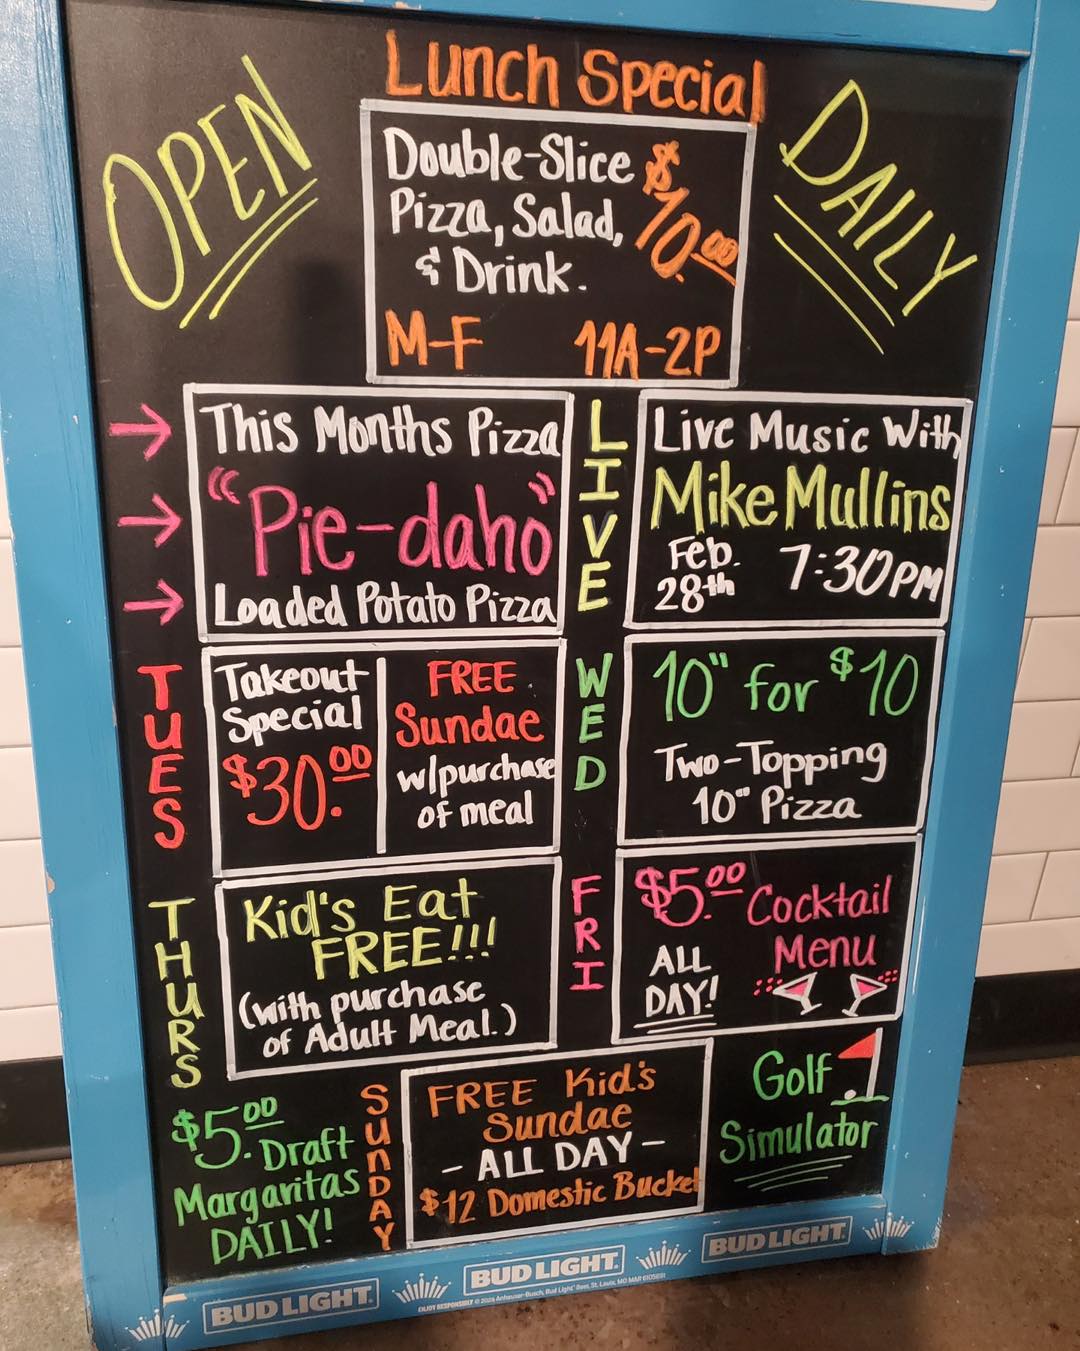 Lunch Special
OPEN
DAILY
Double-Slice
Pizza, Salad,
& Drink.
$10.00
M-F 11A-2P
This Months Pizza
"Pie-daho"
Loaded Potato Pizza
LIVE
Live Music With
Mike Mullins
Feb.
28th
7:30PM
TUES
Takeout
Special
$30.00
FREE
Sundae
w/purchase
of meal
WED
10" for $10
Two-Topping
10" Pizza
THURS
Kid's Eat
FREE!!!
(with purchase
of Adult Meal.)
FRI
$5.00 Cocktail
Menu
ALL
DAY!
$5.00 Draft
Margaritas
DAILY!
SUNDAY
FREE Kid's
Sundae
- ALL DAY -
$12 Domestic Bucket
Golf
Simulator
BUD LIGHT.
BUD LIGHT.
BUD LIGHT.
ENJOY RESPONSIBLY © 2024 Anheuser-Busch, Bud Light® Beer, St. Louis, MO